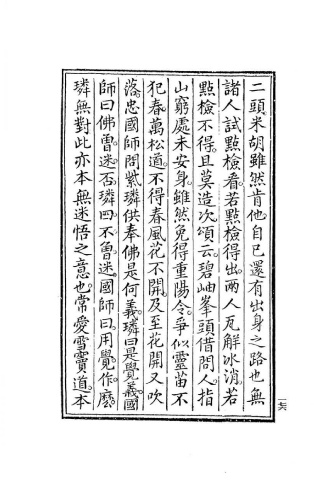 二頭米胡雖然肯他自己還有出身之路也無
諸人試點檢看若點檢得出兩人瓦解冰消若
點檢不得且莫造次頌云碧岫峯頭借問人指
山窮處未安身雖然免得重陽令爭似靈苗不
犯春萬松道不得春風花不開及至花開又吹
落忠國師問紫璘供奉佛是何義璘曰是覺義國
師曰佛曾迷否璘曰不曾迷國師曰用覺作麼
璘無對此亦本無迷悟之意也常愛雪竇道本